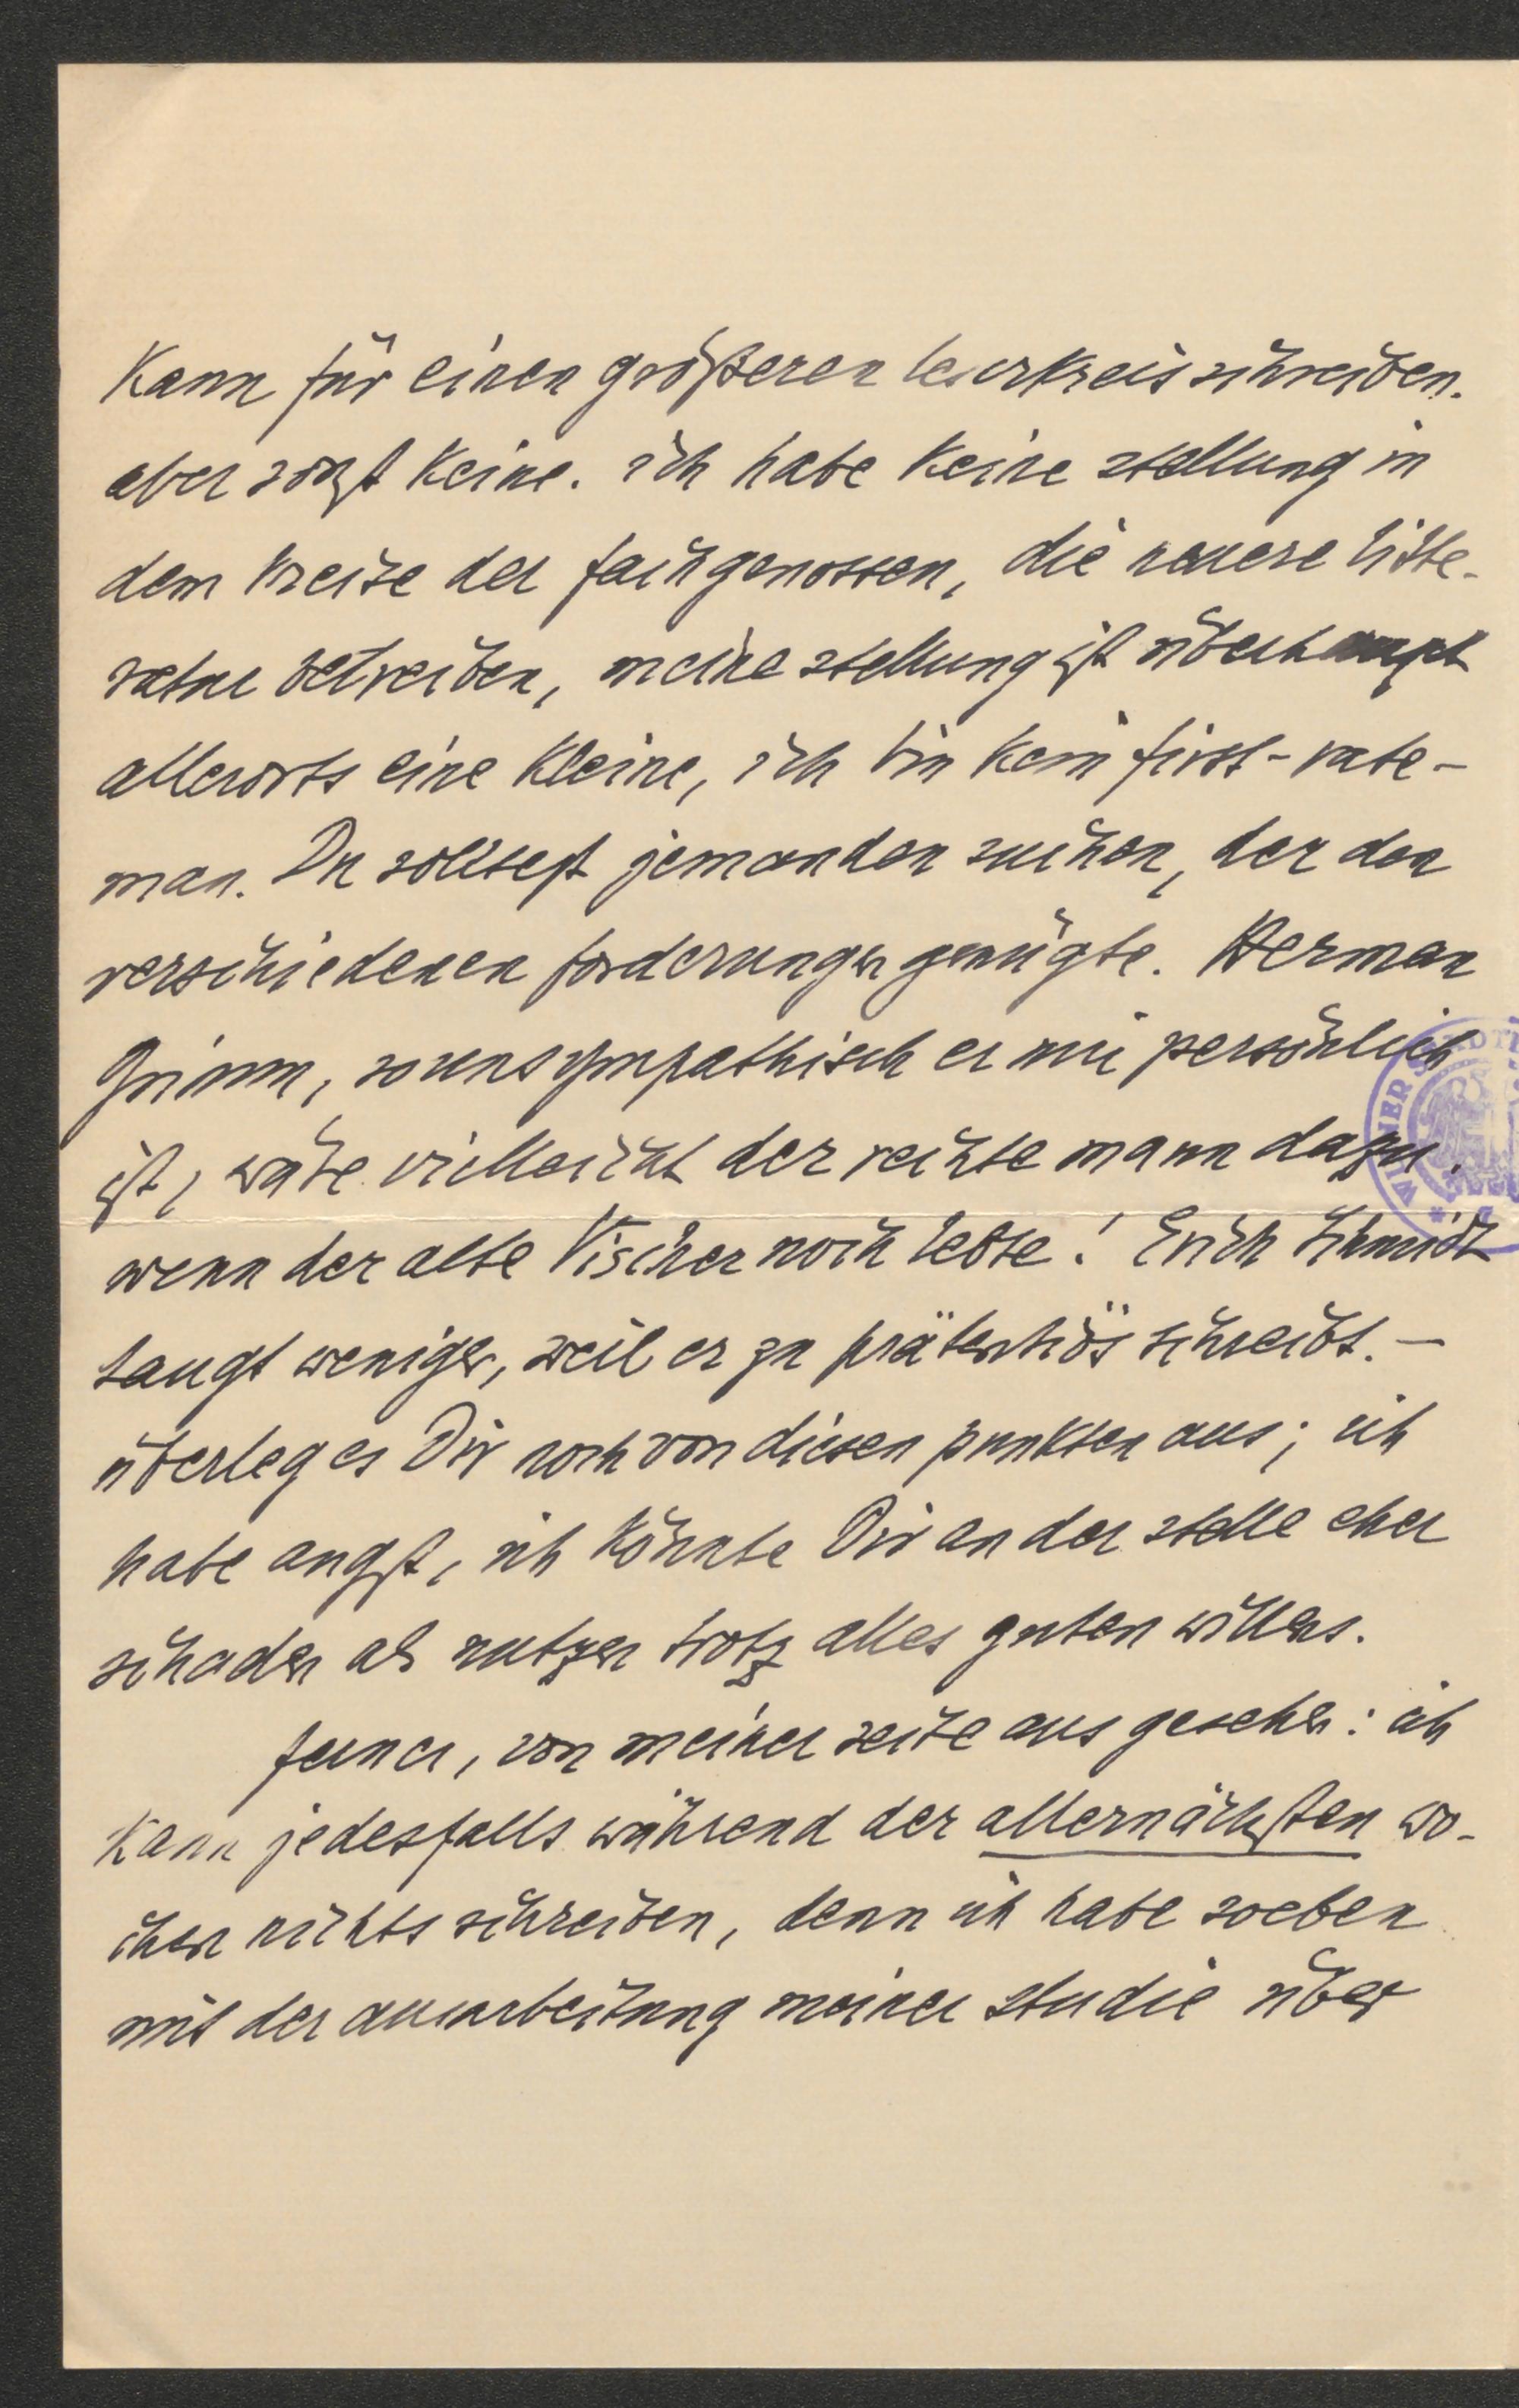 kann für einen größeren leserkreis schreiben.
aber sonst keine. ich habe keine stellung in
dem kreise der fachgenossen, die neuere litte-
ratur betreiben, meine stellung ist überhaupt
allerorts eine kleine, ich bin kein first-rate-
man. Du solltest jemanden suchen, der den
verschiedenen forderungen genügte. Herman
Grimm, so unsympathisch er mir persönlich
ist, wäre vielleicht der rechte mann dazu.
wenn der alte Vischer noch lebte! Erich Schmidt
taugt weniger, weil er zu prätentiös schreibt. –
überleg es Dir noch von diesen punkten aus; ich
habe angst, ich könnte Dir an der stelle eher
schaden als nutzen trotz alles guten willens.
ferner, von meiner seite aus gesehen: ich
kann jedesfalls während der allernächsten wo-
chen nichts schreiben, denn ich habe soeben
mit der ausarbeitung meiner studie über
WIENER STADT